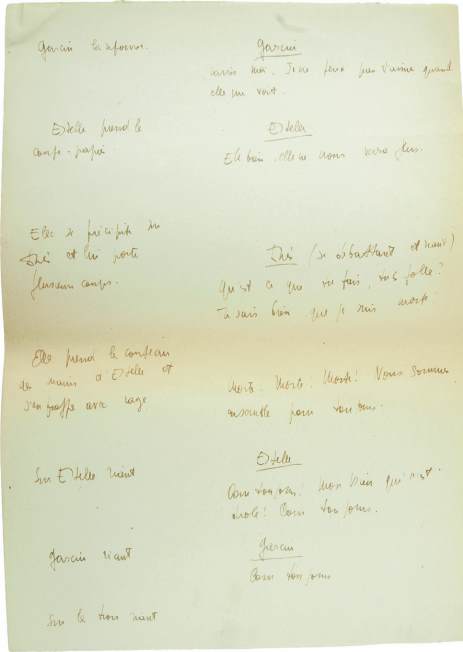 Garcin la repousse.
Garcin
Je ne peux pas t'aimer quand
elle me voit.
Estelle prend le
coupe-papier
Estelle
Eh bien, elle ne nous verra plus.
Elle se précipite sur
Inès et lui porte
plusieurs coups.
Inès (se débattant et riant)
Qu'est ce que tu fais, tu es folle?
Tu sais bien que je suis morte
Elle prend le couteau
des mains d'Estelle et
s'en frappe avec rage
Morte. Morte. Morte! Nous sommes
ensemble pour toujours.
Sur Estelle riant
Estelle
Pour toujours! Mon Dieu que c'est
drôle! Pour toujours.
Garcin riant
Garcin
Pour toujours
Sur les trois riant